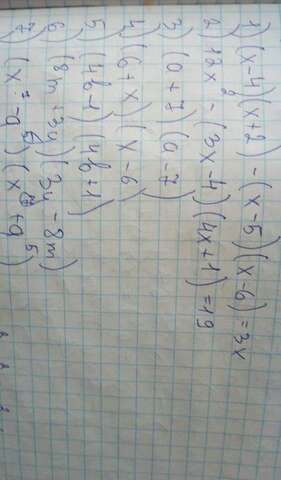 1) (x-4)(x+2) - (x-5)(x-6) = 3x
2) 12x² - (3x-4)(4x+1) = 19
3) (a+7)(a-7)
4) (6+x)(x-6)
5) (4b-1)(4b+1)
6) (8m+3y)(3y-8m)
7) (x - a⁵)(x + a⁵)